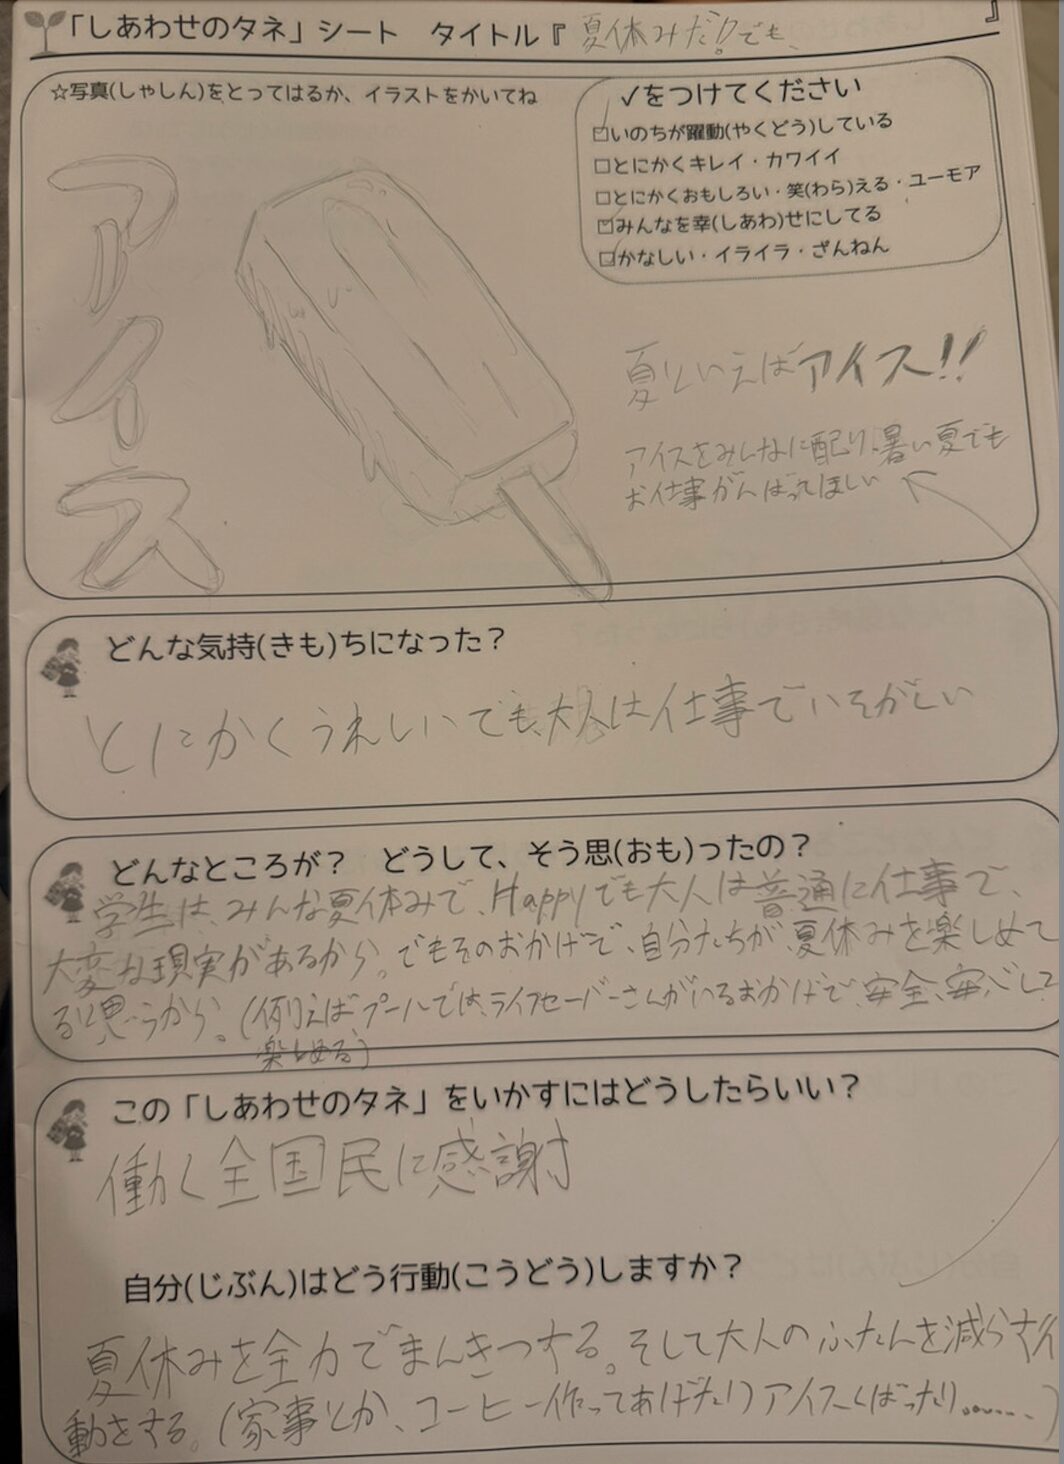 「しあわせのタネ」シート　タイトル『夏休みだ!?でも、』
☆写真(しゃしん)をとってはるか、イラストをかいてね
✓をつけてください
☑いのちが躍動(やくどう)している
□とにかくキレイ・カワイイ
□とにかくおもしろい・笑(わら)える・ユーモア
☑みんなを幸(しあわ)せにしてる
☑かなしい・イライラ・ざんねん
アイス
夏といえばアイス!!
アイスをみんなに配り、暑い夏でも
お仕事がんばってほしい
どんな気持(きも)ちになった？
とにかくうれしいでも、大人は仕事でいそがしい
どんなところが？　どうして、そう思(おも)ったの？
学生は、みんな夏休みで、Happyでも大人は普通に仕事で、
大変な現実があるから。でもそのおかげで、自分たちが、夏休みを楽しめて
ると思うから。(例えば、プールでは、ライフセーバーさんがいるおかげで、安全、安心して
楽しめる)
この「しあわせのタネ」をいかすにはどうしたらいい？
働く全国民に感謝
自分(じぶん)はどう行動(こうどう)しますか？
夏休みを全力でまんきつする。そして大人のふたんを減らす行
動をする。(家事とか、コーヒー作ってあげたり)アイスくばったり。……)